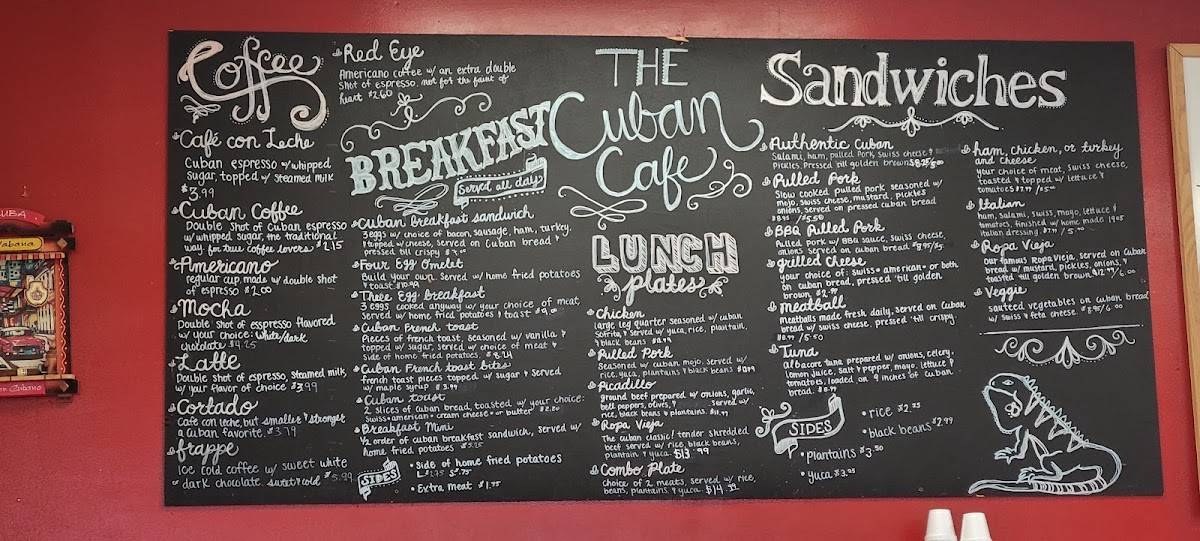 UBA
Habana
Coffee
Café con Leche
Cuban espresso w/ whipped
sugar, topped w/ steamed milk
$3.99
Cuban Coffee
Double shot of Cuban espresso
w/ whipped sugar, the traditional
way. for true coffee lovers! $2.15
Americano
regular cup, made w/ double shot
of espresso $2.00
Mocha
Double shot of esspresso flavored
w/ your choice: white/dark
chocolate $4.25
Latte
Double shot of espresso, steamed milk,
w/ your flavor of choice $3.99
Cortado
Café con leche, but smaller & stronger
a Cuban favorite. $3.79
frappe
Ice cold coffee w/ sweet white
or dark chocolate. sweet & cold $5.99
Red Eye
Americano coffee w/ an extra double
shot of espresso. not for the faint of
heart $2.60
BREAKFAST
Served all day
Cuban breakfast sandwich
3 eggs w/ choice of bacon, sausage, ham, turkey,
& topped w/ cheese, served on Cuban bread &
pressed till crispy
Four Egg Omelet
Build your own. Served w/ home fried potatoes
& toast $10.99
Three Egg breakfast
eggs cooked anyway w/ your choice of meat,
served w/ home fried potatoes & toast $9.00
Cuban French toast
Pieces of french toast, seasoned w/ vanilla &
topped w/ sugar, served w/ choice of meat &
side of home fried potatoes. $8.74
Cuban French toast bites
french toast pieces topped w/ sugar & served
w/ maple syrup $3.99
Cuban toast
2 slices of Cuban bread, toasted w/ your choice:
swiss • american • cream cheese • or butter $2.80
Breakfast Mini
1/2 order of cuban breakfast sandwich, served w/
home fried potatoes
SIDES
• Side of home fried potatoes
• Extra meat $1.75
THE
Cuban
Cafe
LUNCH
plates
Chicken
large leg quarter seasoned w/ cuban
sofrito & served w/ yuca, rice, plantain,
& black beans
Pulled Pork
Seasoned w/ Cuban mojo. served w/
rice, yuca, plantains & black beans
Picadillo
ground beef prepared w/ onions, garlic,
bell peppers, olives, & served w/
rice, black beans & plantains.
Ropa Vieja
The cuban classic! tender shredded
beef served w/ rice, black beans,
plantain & yuca. $13.99
Combo Plate
choice of 2 meats, served w/ rice,
beans, plantains & yuca $14.99
Sandwiches
Authentic Cuban
Salami, ham, pulled pork, swiss cheese &
pickles. Pressed till golden brown
Pulled Pork
Slow cooked pulled pork seasoned w/
mojo, swiss cheese, mustard, pickles
onions, served on pressed cuban bread
$8.95/5.50
BBQ Pulled Pork
Pulled pork w/ BBQ sauce, swiss cheese,
onions served on cuban bread
grilled Cheese
your choice of: swiss • american • or both
on cuban bread, pressed 'till golden
brown
Meatball
meatballs made fresh daily, served on cuban
bread w/ swiss cheese, pressed 'till crispy.
/5.50
Tuna
albacore tuna prepared w/ onions, celery,
lemon juice, salt & pepper, mayo, lettuce &
tomatoes, loaded on 9 inches of cuban
bread.
SIDES
• rice $2.35
• black beans $2.99
• plantains $3.50
• yuca $3.95
ham, chicken, or turkey
and cheese
your choice of meat, swiss cheese,
toasted & topped w/ lettuce &
tomatoes
Italian
ham, salami, swiss, mayo, lettuce &
tomatoes, finished w/ home made 1905
italian dressing.
Ropa Vieja
our famous Ropa Vieja, served on Cuban
bread w/ mustard, pickles, onions, &
toasted till golden brown
Veggie
sauteed vegetables on cuban bread
w/ swiss & feta cheese.